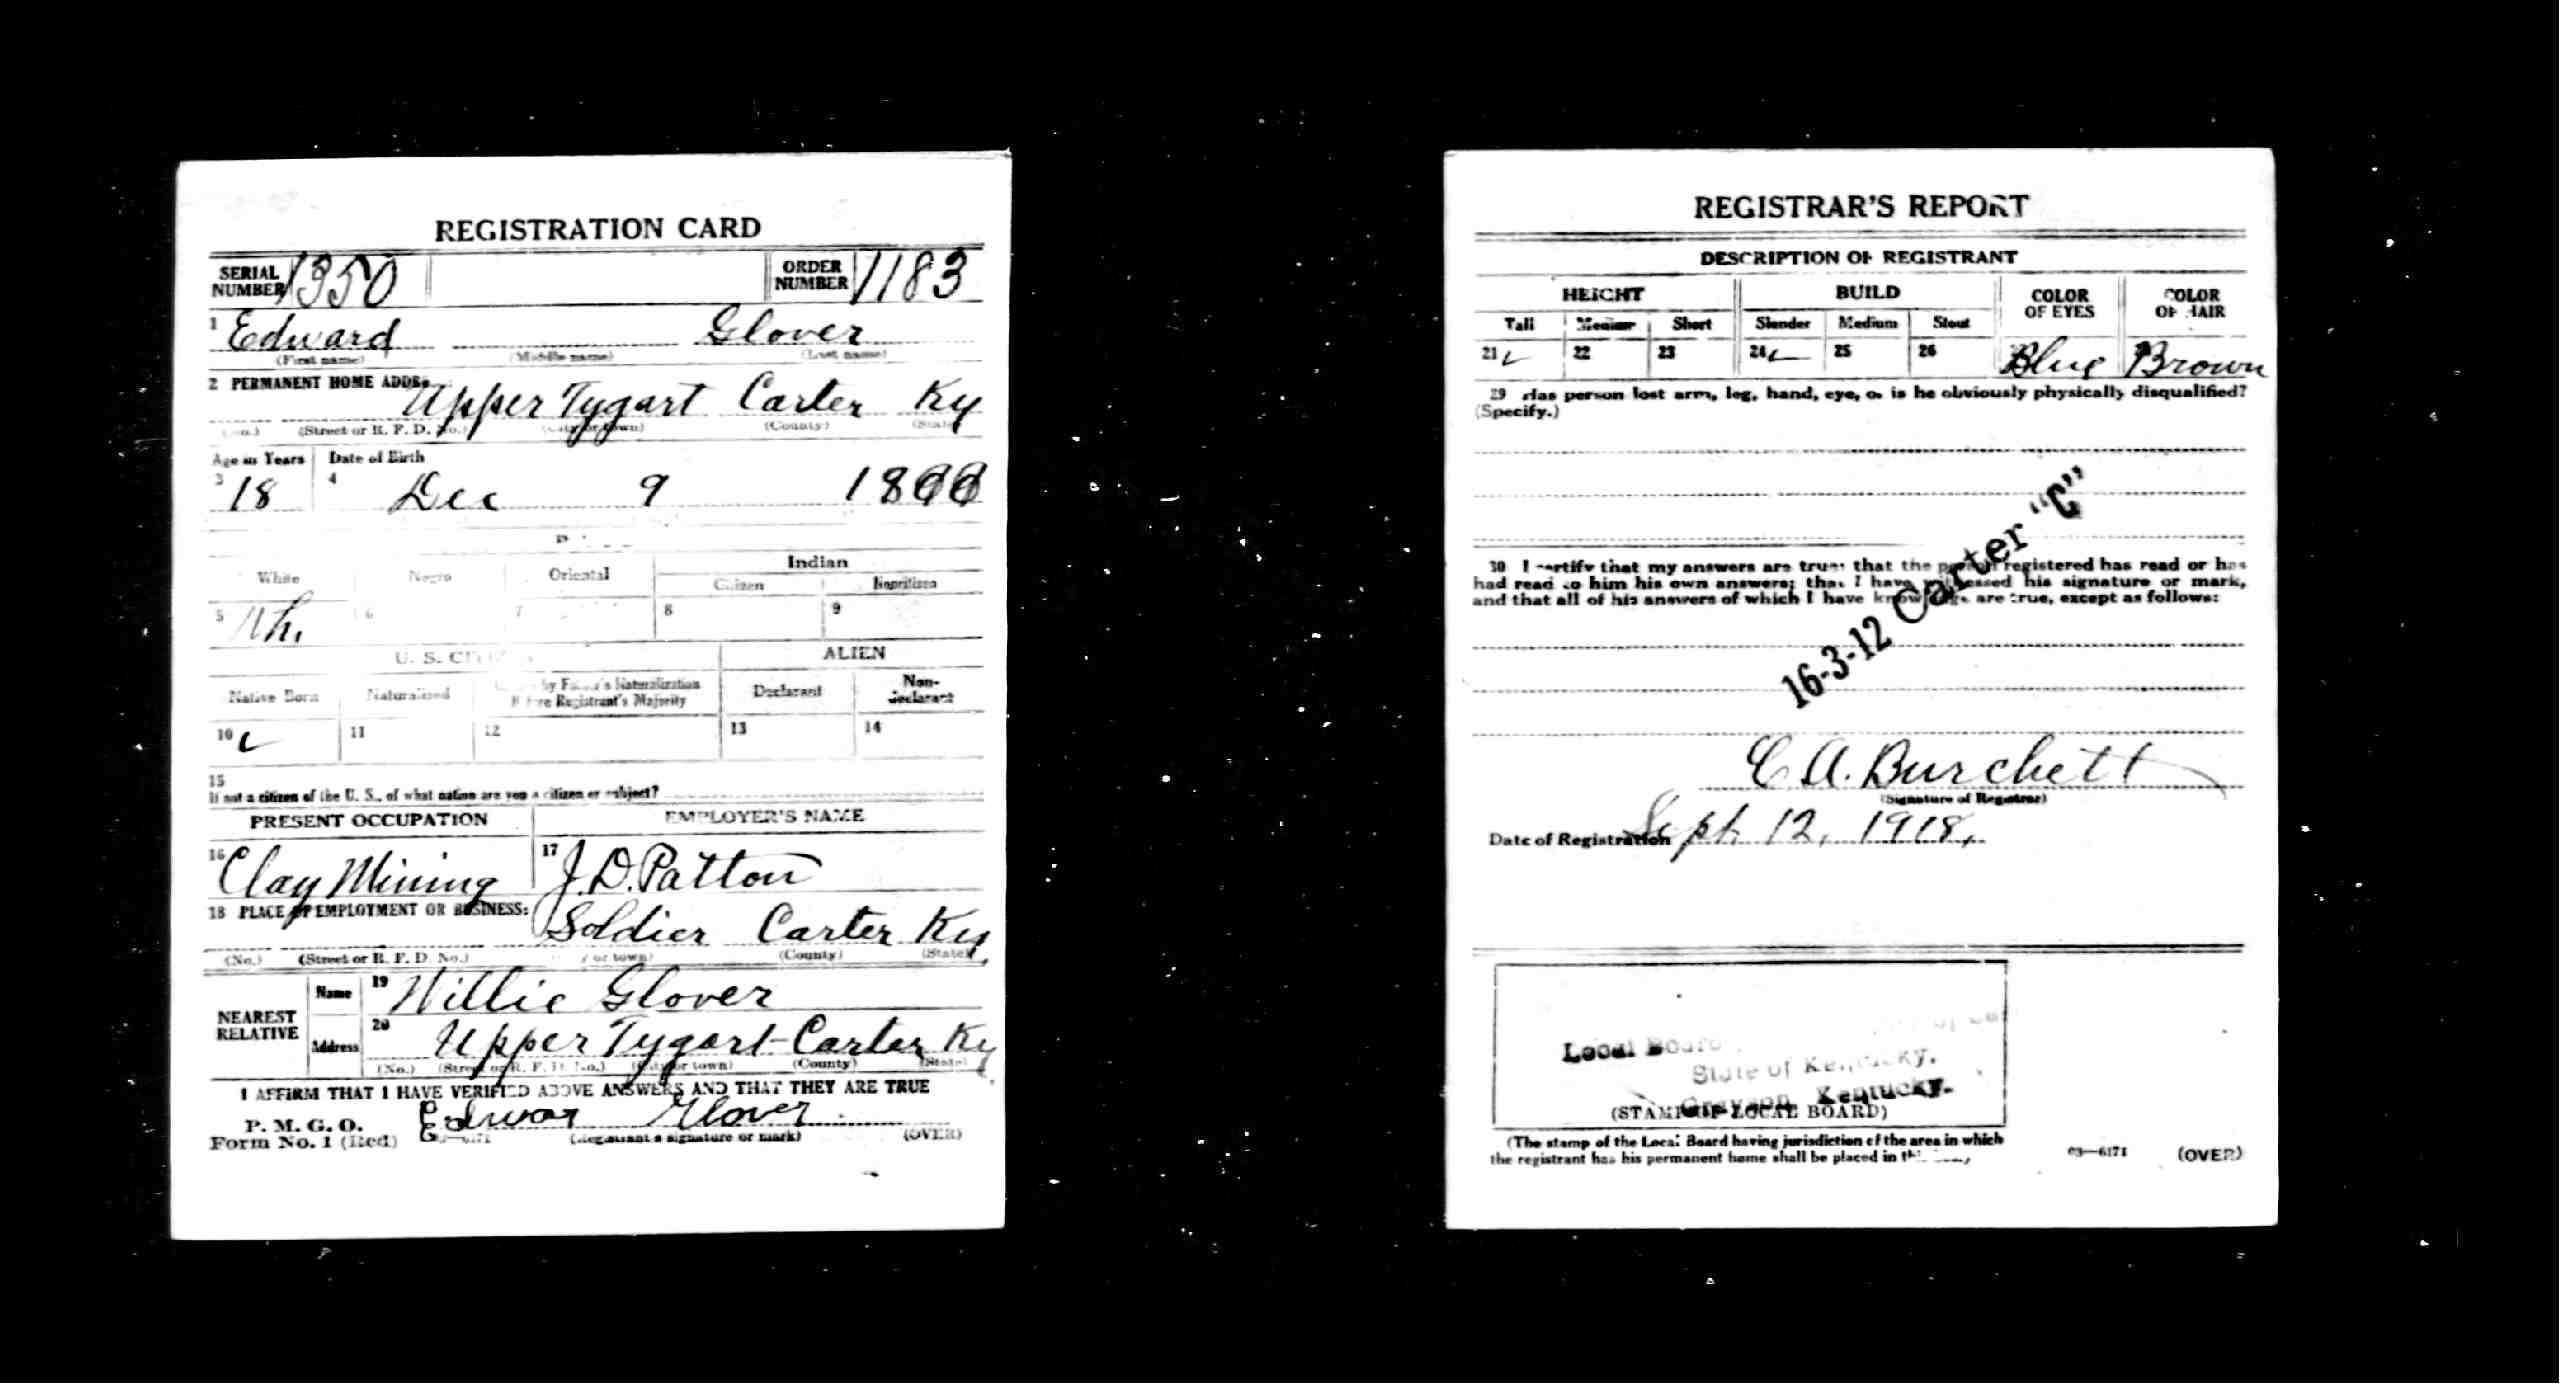 REGISTRATION CARD
SERIAL NUMBER 1350 ORDER NUMBER 1183
1 Edward Glover
(First name) (Middle name) (Last name)
2 PERMANENT HOME ADDR
Upper Tygart Carter Ky
(No.) (Street or R. F. D. No.) (City or town) (County) (State)
Age in Years Date of Birth
3 18 4 Dec 9 18
Indian
White Negro Oriental Citizen Noncitizen
5 Wh. 6 7 8 9
U. S. ALIEN
Native Born Naturalized by Father's Naturalization Before Registrant's Majority Declarant Non-declarant
10 ✓ 11 12 13 14
15
If not a citizen of the U. S., of what nation are you a citizen or subject?
PRESENT OCCUPATION EMPLOYER'S NAME
16 Clay Mining 17 J. D. Patton
18 PLACE OF EMPLOYMENT OR BUSINESS:
Soldier Carter Ky
(No.) (Street or R. F. D. No.) or town) (County) (State)
NEAREST RELATIVE Name 19 Willie Glover
Address 20 Upper Tygart-Carter Ky
(No.) (Street or R. F. D. No.) (City or town) (County) (State)
I AFFIRM THAT I HAVE VERIFIED ABOVE ANSWERS AND THAT THEY ARE TRUE
P. M. G. O.
Form No. 1 (Red) Edwar Glover
(Registrant's signature or mark) (OVER)
REGISTRAR'S REPORT
DESCRIPTION OF REGISTRANT
HEIGHT BUILD COLOR OF EYES COLOR OF HAIR
Tall Medium Short Slender Medium Stout
21 ✓ 22 23 24 ✓ 25 26 Blue Brown
29 Has person lost arm, leg, hand, eye, or is he obviously physically disqualified?
(Specify.)
30 I certify that my answers are true; that the person registered has read or has
had read to him his own answers; that I have witnessed his signature or mark,
and that all of his answers of which I have knowledge are true, except as follows:
16-3-12 Carter "C"
C. A. Burchett
(Signature of Registrar)
Date of Registration Sept. 12, 1918,
Local Board
State of Kentucky.
Grayson, Kentucky.
(STAMP OF LOCAL BOARD)
(The stamp of the Local Board having jurisdiction of the area in which
the registrant has his permanent home shall be placed in
03—6171 (OVER)